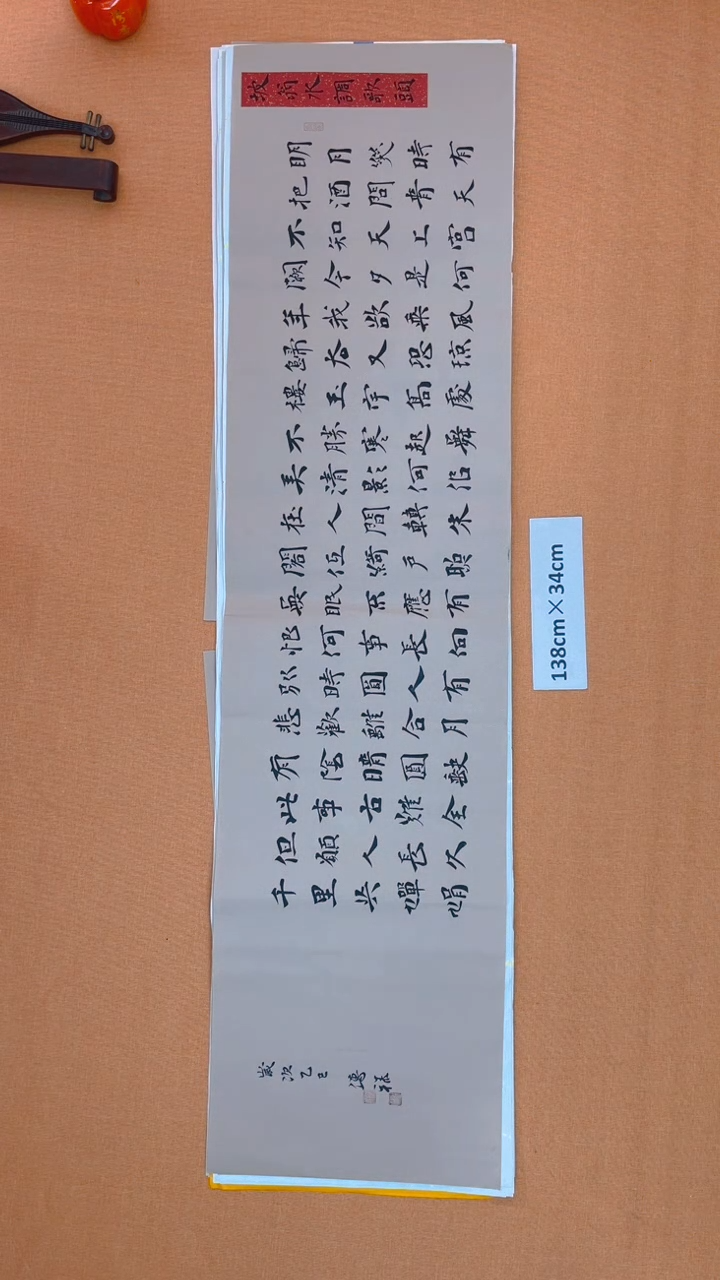 坡翁水調歌頭
明月幾時有
把酒問青天
不知天上宮
闕今夕是何
年我欲乘風
歸去又恐瓊
樓玉宇高處
不勝寒起舞
弄清影何佀
在人間轉朱
閣低綺戶照
無眠不應有
恨何事長向
別時圓人有
悲歡離合月
有陰晴圓缺
此事古難全
但願人長久
千里共嬋娟
歲次乙巳 德
138cm×34cm